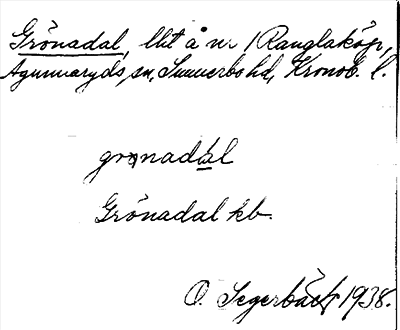 Grönadal, lht å nr 1 Ranglaköp,
Agunnaryds sn, Sunnerbo hd, Kronob. l.
grɔnadɑ̀l
Grönadal kb.
O. Segerbäck 1938.